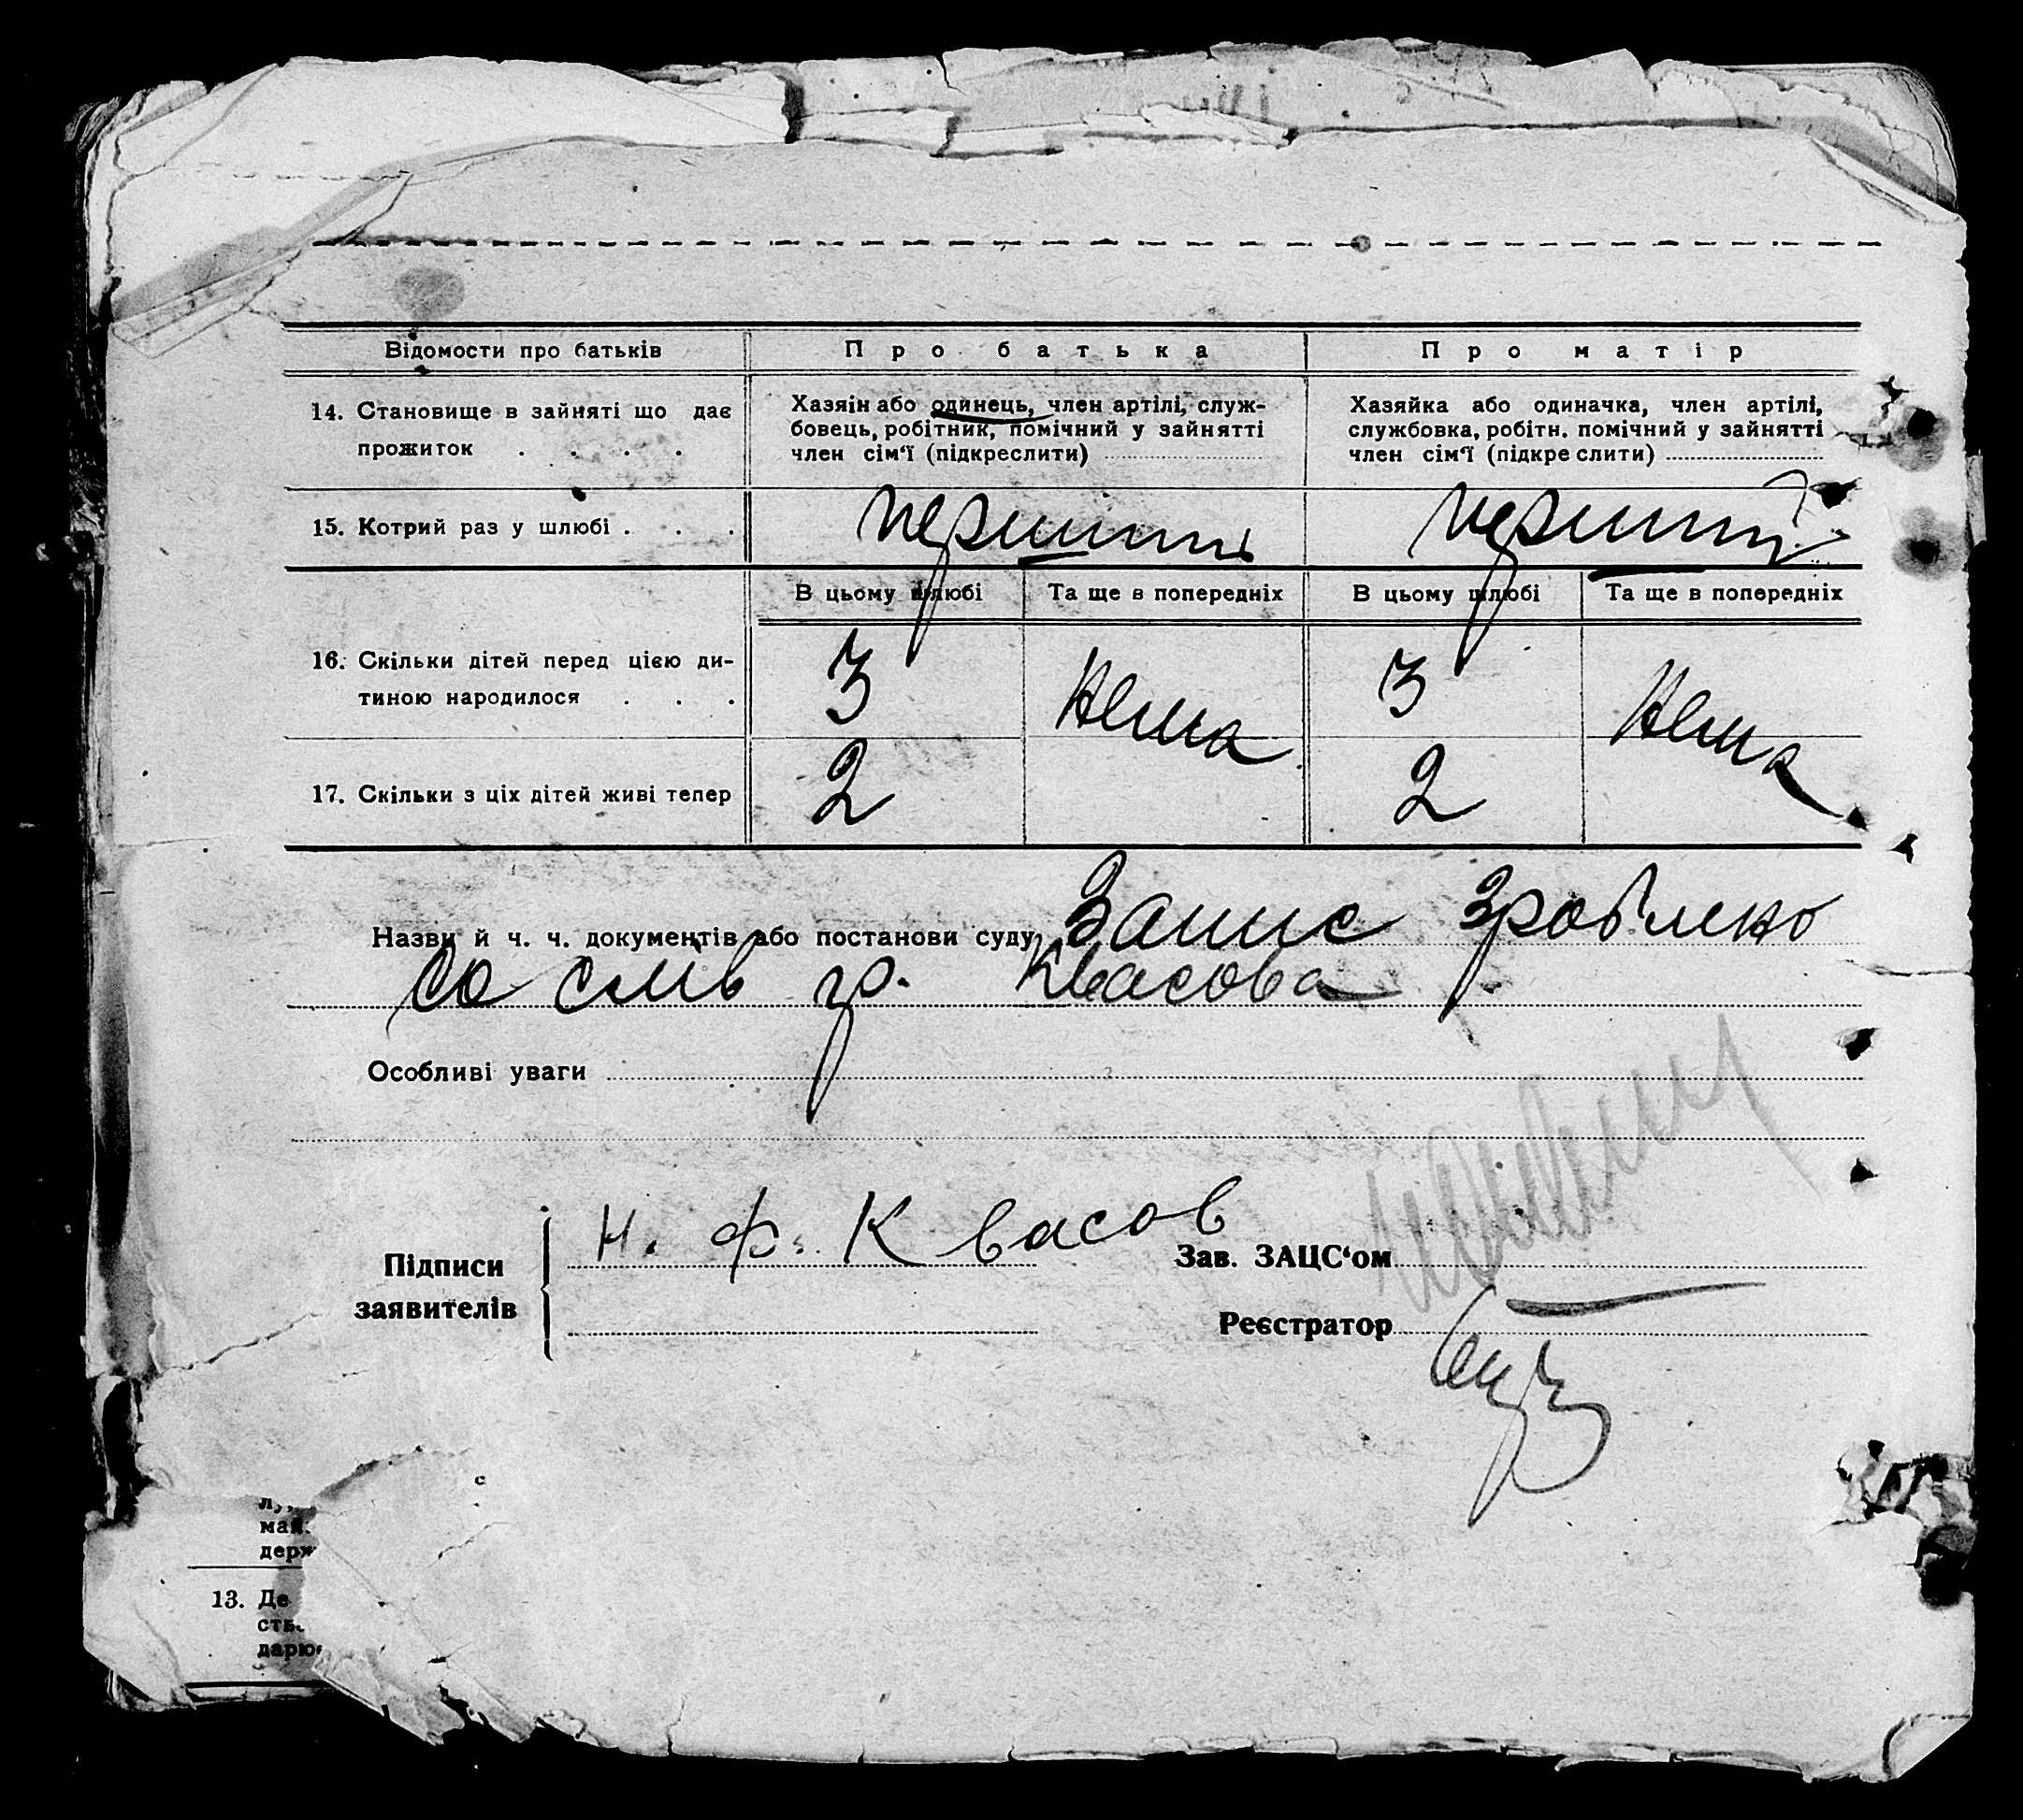 Відомости про батьків Про батька Про матір
14. Становище в зайняті що дає
прожиток . . . .
Хазяін або одинець, член артілі, служ-
бовець, робітник, помічний у зайнятті
член сім'ї (підкреслити)
Хазяйка або одиначка, член артілі,
службовка, робітн. помічний у зайнятті
член сім'ї (підкреслити)
15. Котрий раз у шлюбі . . . перший перший
В цьому шлюбі Та ще в попередніх В цьому шлюбі Та ще в попередніх
16. Скільки дітей перед цією ди-
тиною народилося . . .
3 Нема 3 Нема
17. Скільки з ціх дітей живі тепер 2 2
Назви й ч. ч. документів або постанови суду Запис зроблено
со слів гр. Квасова
Особливі уваги
Підписи
заявителів
Н. Ф. Квасов
Зав. ЗАЦС'ом
Реєстратор
13. Де